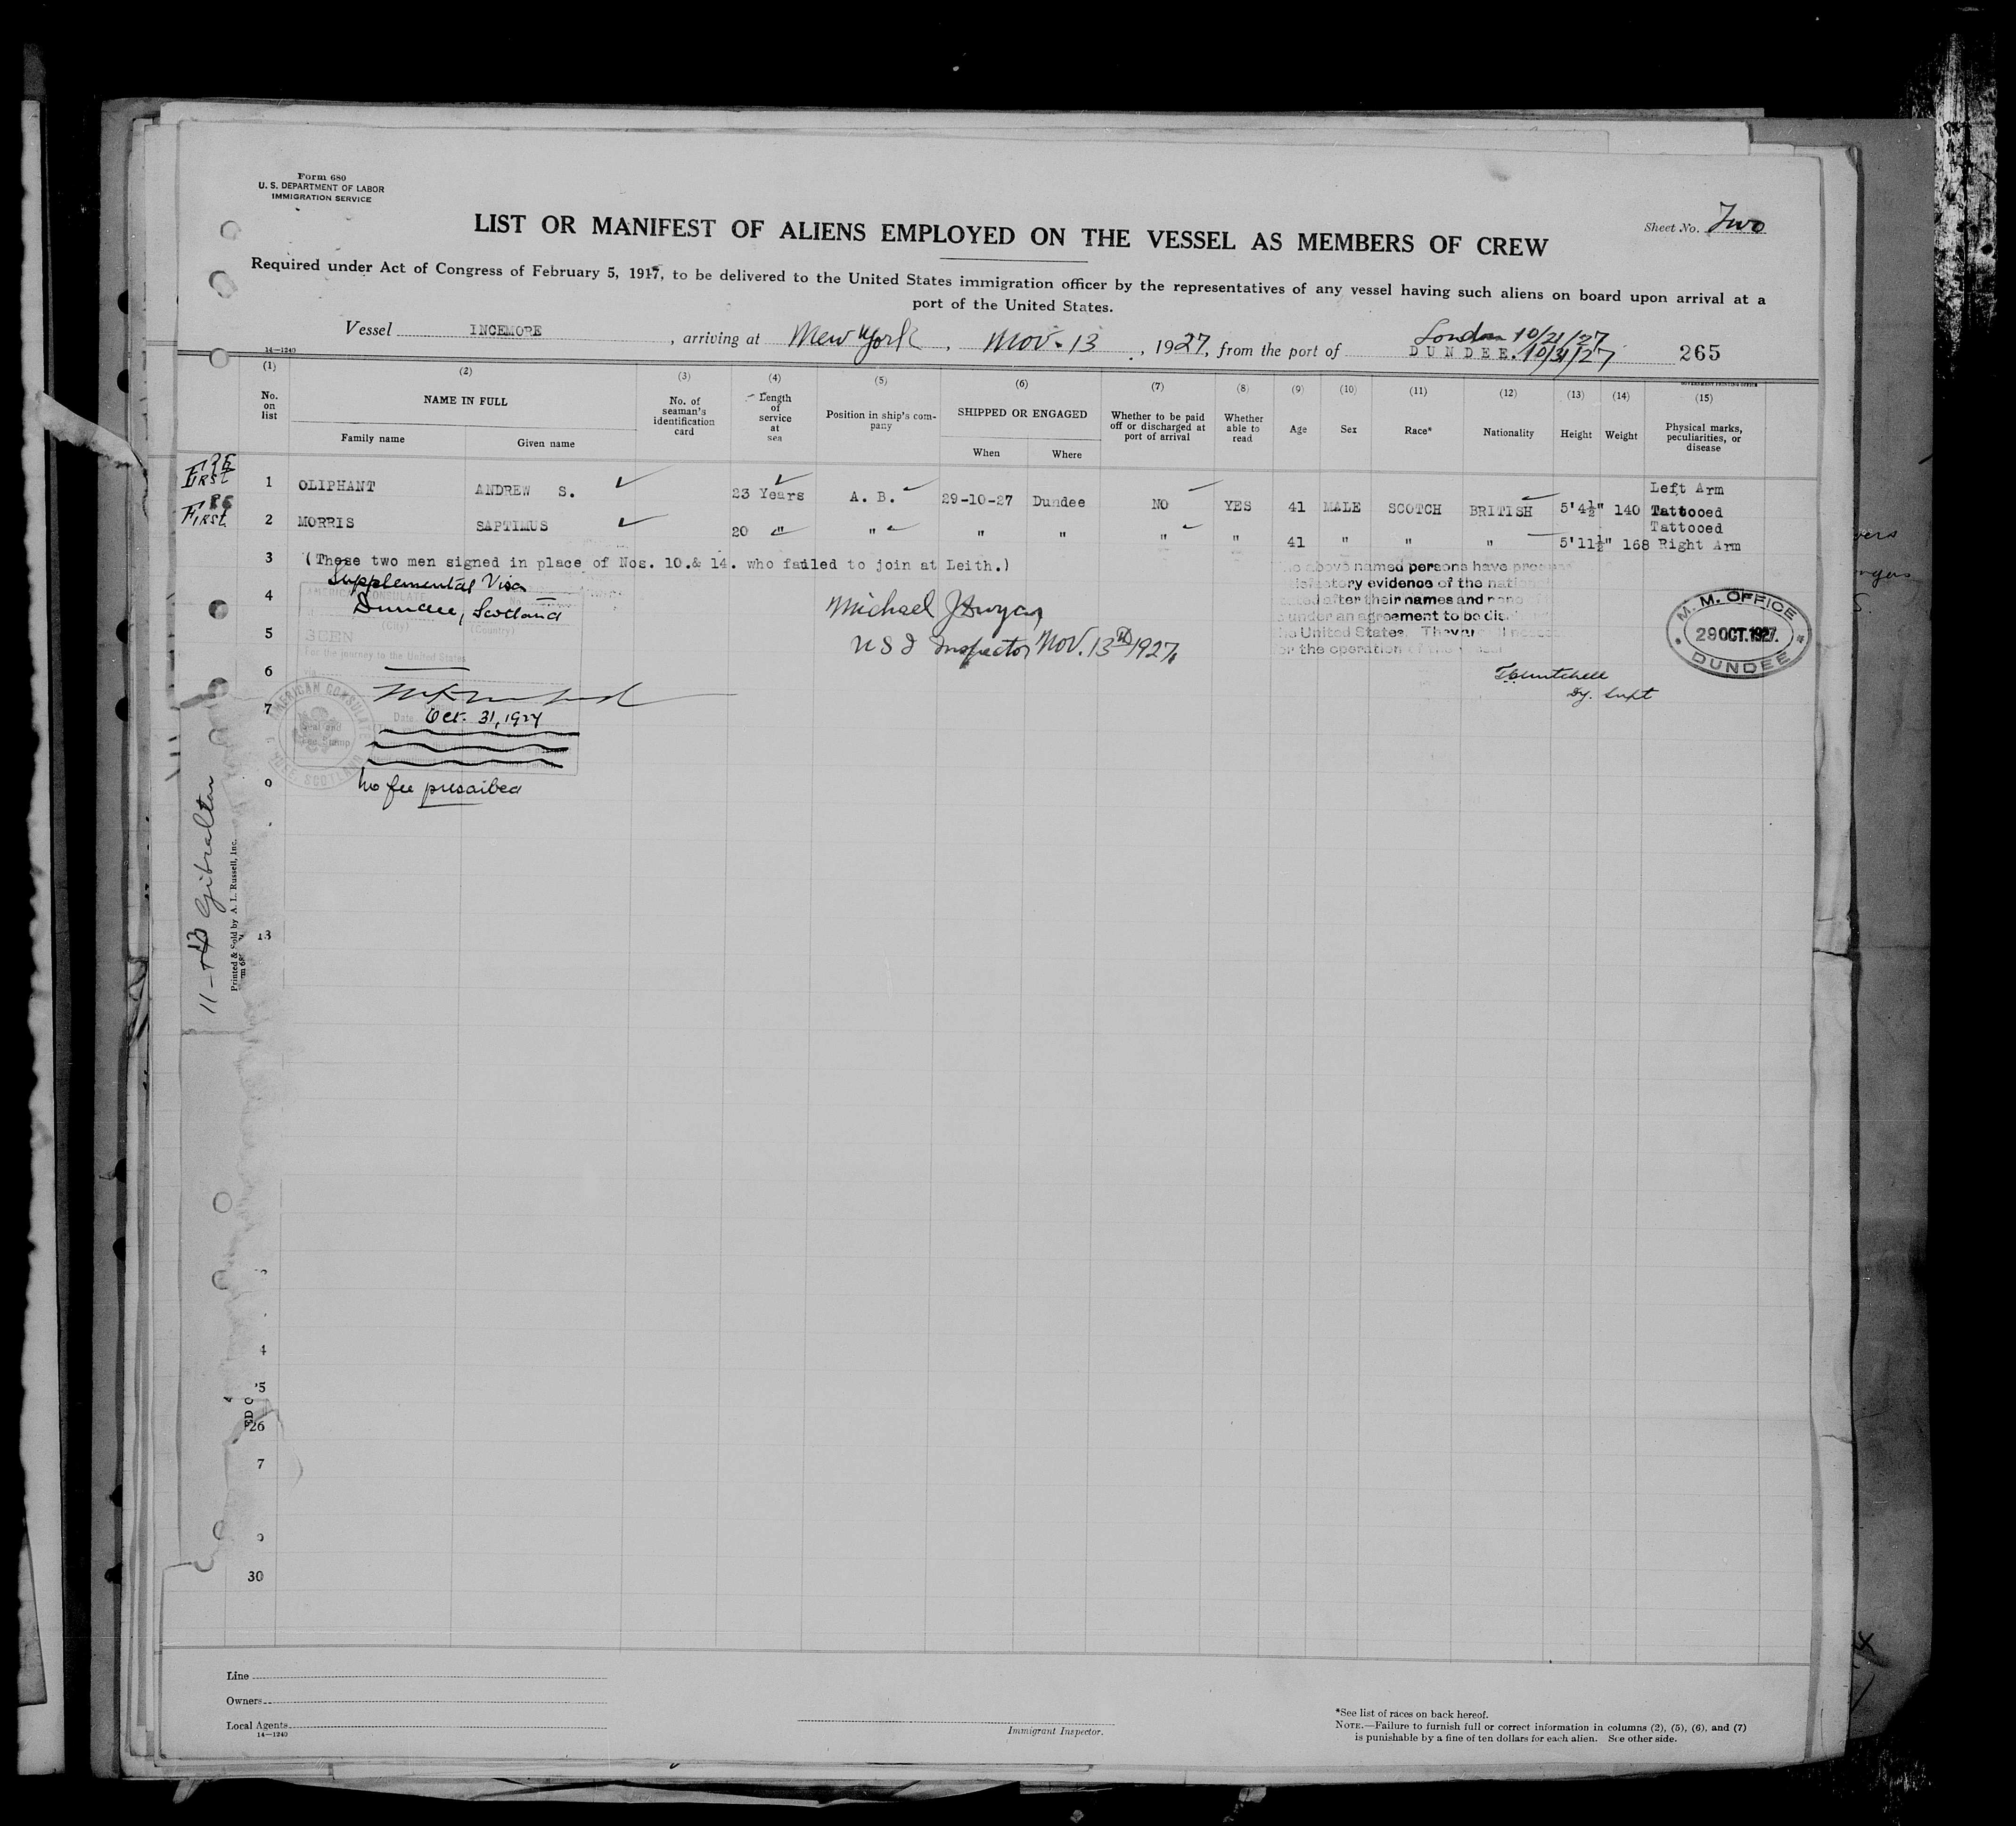 Form 680
U. S. DEPARTMENT OF LABOR
IMMIGRATION SERVICE
Sheet No. Two
LIST OR MANIFEST OF ALIENS EMPLOYED ON THE VESSEL AS MEMBERS OF CREW
Required under Act of Congress of February 5, 1917, to be delivered to the United States immigration officer by the representatives of any vessel having such aliens on board upon arrival at a
port of the United States.
London 10/21/27
Vessel INCEMORE, arriving at New York, Nov. 13, 1927, from the port of DUNDEE. 10/31/27 265
14—1240
GOVERNMENT PRINTING OFFICE
(1) (2) (3) (4) (5) (6) (7) (8) (9) (10) (11) (12) (13) (14) (15)
No. on list
NAME IN FULL
Family name Given name
No. of seaman's identification card
Length of service at sea
Position in ship's company
SHIPPED OR ENGAGED
When Where
Whether to be paid off or discharged at port of arrival
Whether able to read
Age
Sex
Race*
Nationality
Height
Weight
Physical marks, peculiarities, or disease
First 1 OLIPHANT ANDREW S. 23 Years A. B. 29-10-27 Dundee NO YES 41 MALE SCOTCH BRITISH 5'4½" 140 Left Arm Tattooed
First 2 MORRIS SAPTIMUS 20 " " " " " " 41 " " " 5'11½" 168 Tattooed Right Arm
3 (These two men signed in place of Nos. 10.& 14. who failed to join at Leith.)
Supplemental Visa
4 Dundee, Scotland
AMERICAN CONSULATE
(City) (Country)
5
For the journey to the United States
6
7
Oct. 31, 1927
AMERICAN CONSULATE
SCOTLAND
9 No fee prescribed
Michael J Dwyer
U S I Inspector Nov. 13th 1927.
above named persons have
evidence of the
after their names and none
under an agreement to be
the United States. They
for the operation of the vessel
M. M. OFFICE
29 OCT. 1927.
DUNDEE
Dy. Supt
11-13 Gibraltar
Printed & Sold by A. L. Russell, Inc.
13
4
5
26
7
9
30
Line
Owners
Local Agents
14—1240
Immigrant Inspector.
*See list of races on back hereof.
NOTE.—Failure to furnish full or correct information in columns (2), (5), (6), and (7)
is punishable by a fine of ten dollars for each alien. See other side.